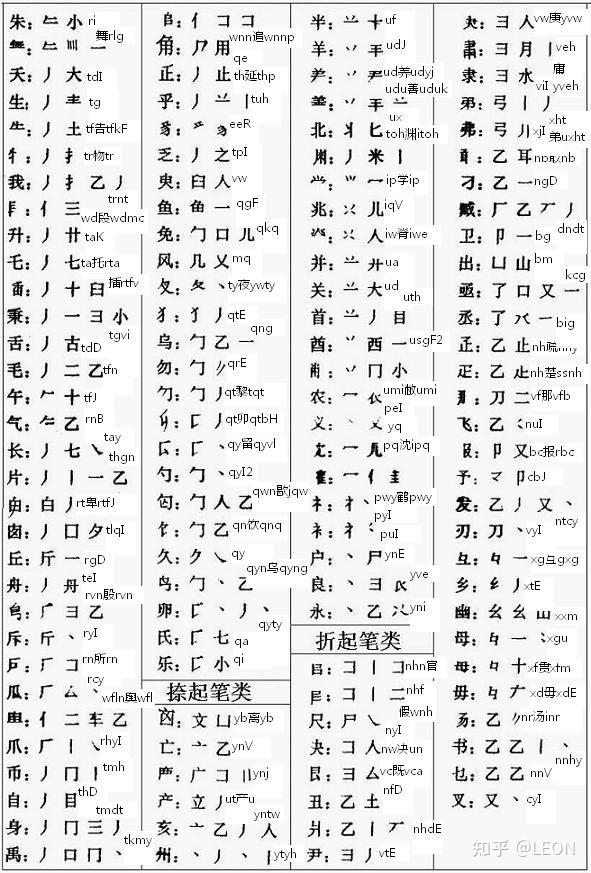 朱：𠂉 小 ri
舞rlg
天：丿 大 tdI
生：丿 龶 tg
丿 土 tf告tfkF
丿 扌 tr物tr
我：丿 扌 乙 丿 trnt
亻 三 wd段wdmc
升：丿 廾 taK
乇：丿 七 ta托rta
丿 十 臼 插rtfv
秉：丿 一 彐 小 tgvi
舌：丿 古 tdD
毛：丿 二 乙 tfn
午：𠂉 十 tfJ
气：𠂉 乙 rnB
长：丿 七 乀 tay
片：丿 丨 一 乙 thgn
白 丿 rt卑rtfJ
囱：丿 囗 夕 tlqI
丘：斤 一 rgD
舟：丿 teI
厂 彐 乙 rvn殷rvn
斥：斤 丶 ryI
厂 コ rn所rn
瓜：厂 厶 乀 rcy
亻 二 车 乙 wfln舆wfl
爪：厂 丨 乀 rhyI
币：丿 冂 丨 tmh
自：丿 目 thD
身：丿 冂 三 丿 tmdt
禹：丿 口 冂 丶 tkmy
亻 コ コ wnni追wnnp
角：⺈ 用 qe
正：丿 止 th延thp
乎：丿 丨 tuh
eeR
乏：丿 之 tpI
臾：臼 人 vw
鱼：鱼 一 qgF
免：勹 口 儿 qkq
风：几 乂 mq
ty夜ywty
犭：丿 qtE
乌：勹 乙 一 qng
勿：勹 qrE
勹 丿 qt黎tqt
匚 丿 qt卯qtbH
匚 丶 qy留qyvl
勺：勹 丶 qyI2
匃：勹 人 乙 qwn歇jqw
饣：勹 乙 qn饮qnq
久：夕 乀 qy
鸟：勹 丶 乙 qyn乌qyng
卵：匚 丶 丿 丶 qyty
氏：匚 七 qa
乐：匚 小 qi
捺起笔类
文 凵 yb离yb
亡：亠 乙 ynV
严：广 コ 刂 ynj
产：立 丿 ut产u
亥：亠 乙 丿 人 yntw
州：丶 丿 丶 丨 ytyh
半：䒑 十 uf
羊：丷 udJ
丿 ud养udyj
udu善uduk
北：丬 匕 ux
丿 米 丨 toh渊itoh
ip学ip
兆：儿 iqV
人 iw脊iwe
并：䒑 廾 ua
关：䒑 大 ud
首：䒑 丿 目 uth
酋：丷 西 一 usgF2
丷 冂 小 umi敝umi
农：冖 peI
义：丶 乂 yq
冖 pq沈ipq
隺：冖 亻 圭 pwy鹤pwy
礻：丶 pyI
衤：puI
户：丶 尸 ynE
良：丶 彐 yve
永：丶 乙 yni
折起笔类
コ 丨 コ nhn官
コ 丨 二 nhf
尺：尸 乀 nyI 假wnh
夬：コ 人 nw决un
艮：彐 厶 vc既vca
丑：乙 土 nfD
爿：乙 丨 丆 nhdE
尹：彐 丿 vtE
彐 人 vw庚yvw
肃：彐 月 丨 veh
隶：彐 水 viI 庸yveh
弟：弓 丨 丿 xht
弗：弓 刂 xjI 弟uxht
乙 耳
刁：乙 一 ngD
臧：厂 乙 丆 丿 dndt
卫：卩 一 bg
出：凵 山 bm
亟：了 口 又 一 kcg
丞：了 一 big
乙 止 nh疏
疋：乙 nh楚ssnh
刀 二 vf那vfb
飞：乙 nuI
卩 又 bc报rbc
予：卩 cbJ
发：乙 丿 又 丶 ntcy
刃：刀 丶 vyI
彑：一 xg互gxg
乡：丿 xtE
幽：幺 幺 山 xxm
母：一 xgu
毌：十 xf贯xfm
毋：xd毋xdE
乙 nr汤inr
书：乙 乙 丨 丶 nnhy
乜：乙 乙 nnV
叉：又 丶 cyI
知乎 @LEON